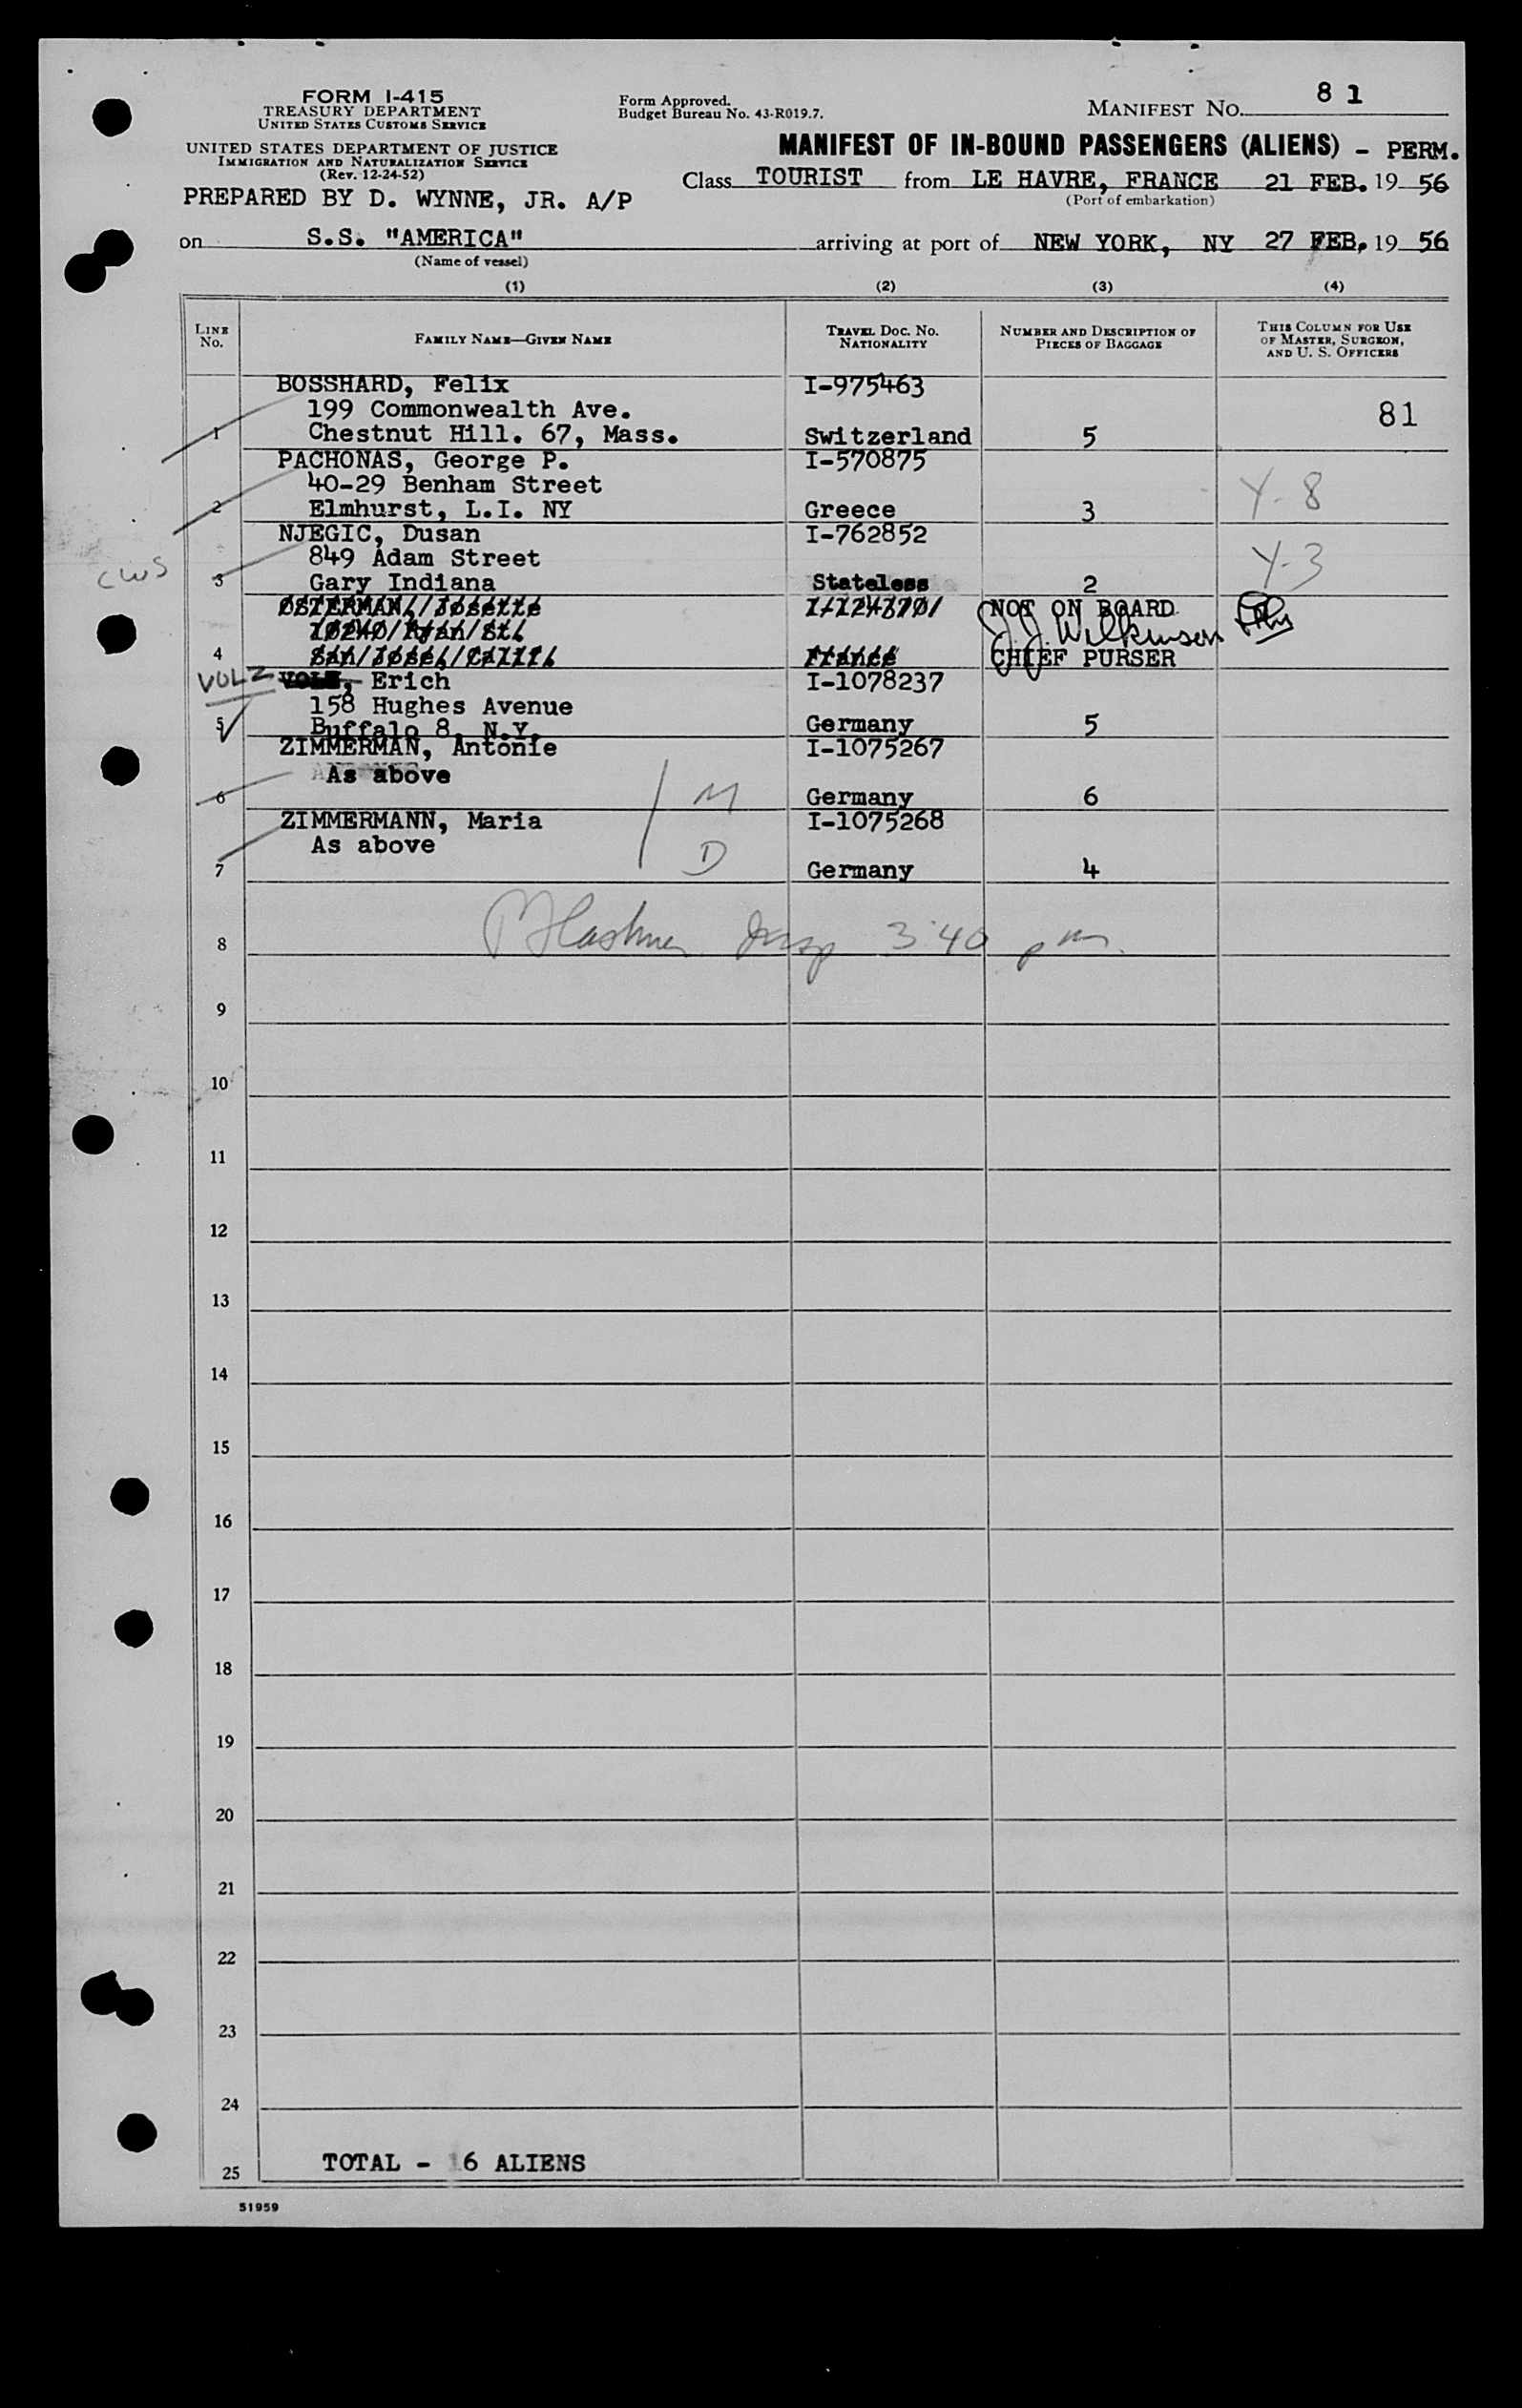 FORM I-415
TREASURY DEPARTMENT
UNITED STATES CUSTOMS SERVICE
UNITED STATES DEPARTMENT OF JUSTICE
IMMIGRATION AND NATURALIZATION SERVICE
(Rev. 12-24-52)
PREPARED BY D. WYNNE, JR. A/P
Form Approved.
Budget Bureau No. 43-R019.7.
MANIFEST No. 8 1
MANIFEST OF IN-BOUND PASSENGERS (ALIENS) - PERM.
Class TOURIST from LE HAVRE, FRANCE 21 FEB. 19 56
(Port of embarkation)
on S.S. "AMERICA" arriving at port of NEW YORK, NY 27 FEB. 19 56
(Name of vessel)
(1) (2) (3) (4)
LINE No. FAMILY NAME—GIVEN NAME TRAVEL DOC. NO. NATIONALITY NUMBER AND DESCRIPTION OF PIECES OF BAGGAGE THIS COLUMN FOR USE OF MASTER, SURGEON, AND U. S. OFFICERS
BOSSHARD, Felix I-975463
199 Commonwealth Ave. 81
1 Chestnut Hill. 67, Mass. Switzerland 5
PACHONAS, George P. I-570875
40-29 Benham Street Y-8
2 Elmhurst, L.I. NY Greece 3
NJEGIC, Dusan I-762852
849 Adam Street Y-3
CWS 3 Gary Indiana Stateless 2
OSTERMAN, Josette NOT ON BOARD
10240 Ryan St. J. J. Wilkinson
4 San Jose, Calif. France CHIEF PURSER
VOLZ VOLK, Erich I-1078237
158 Hughes Avenue
5 Buffalo 8, N.Y. Germany 5
ZIMMERMAN, Antonie I-1075267
As above
6 M Germany 6
ZIMMERMANN, Maria I-1075268
As above D
7 Germany 4
8 Insp 3:40 pm.
9
10
11
12
13
14
15
16
17
18
19
20
21
22
23
24
25 TOTAL - 6 ALIENS
51959